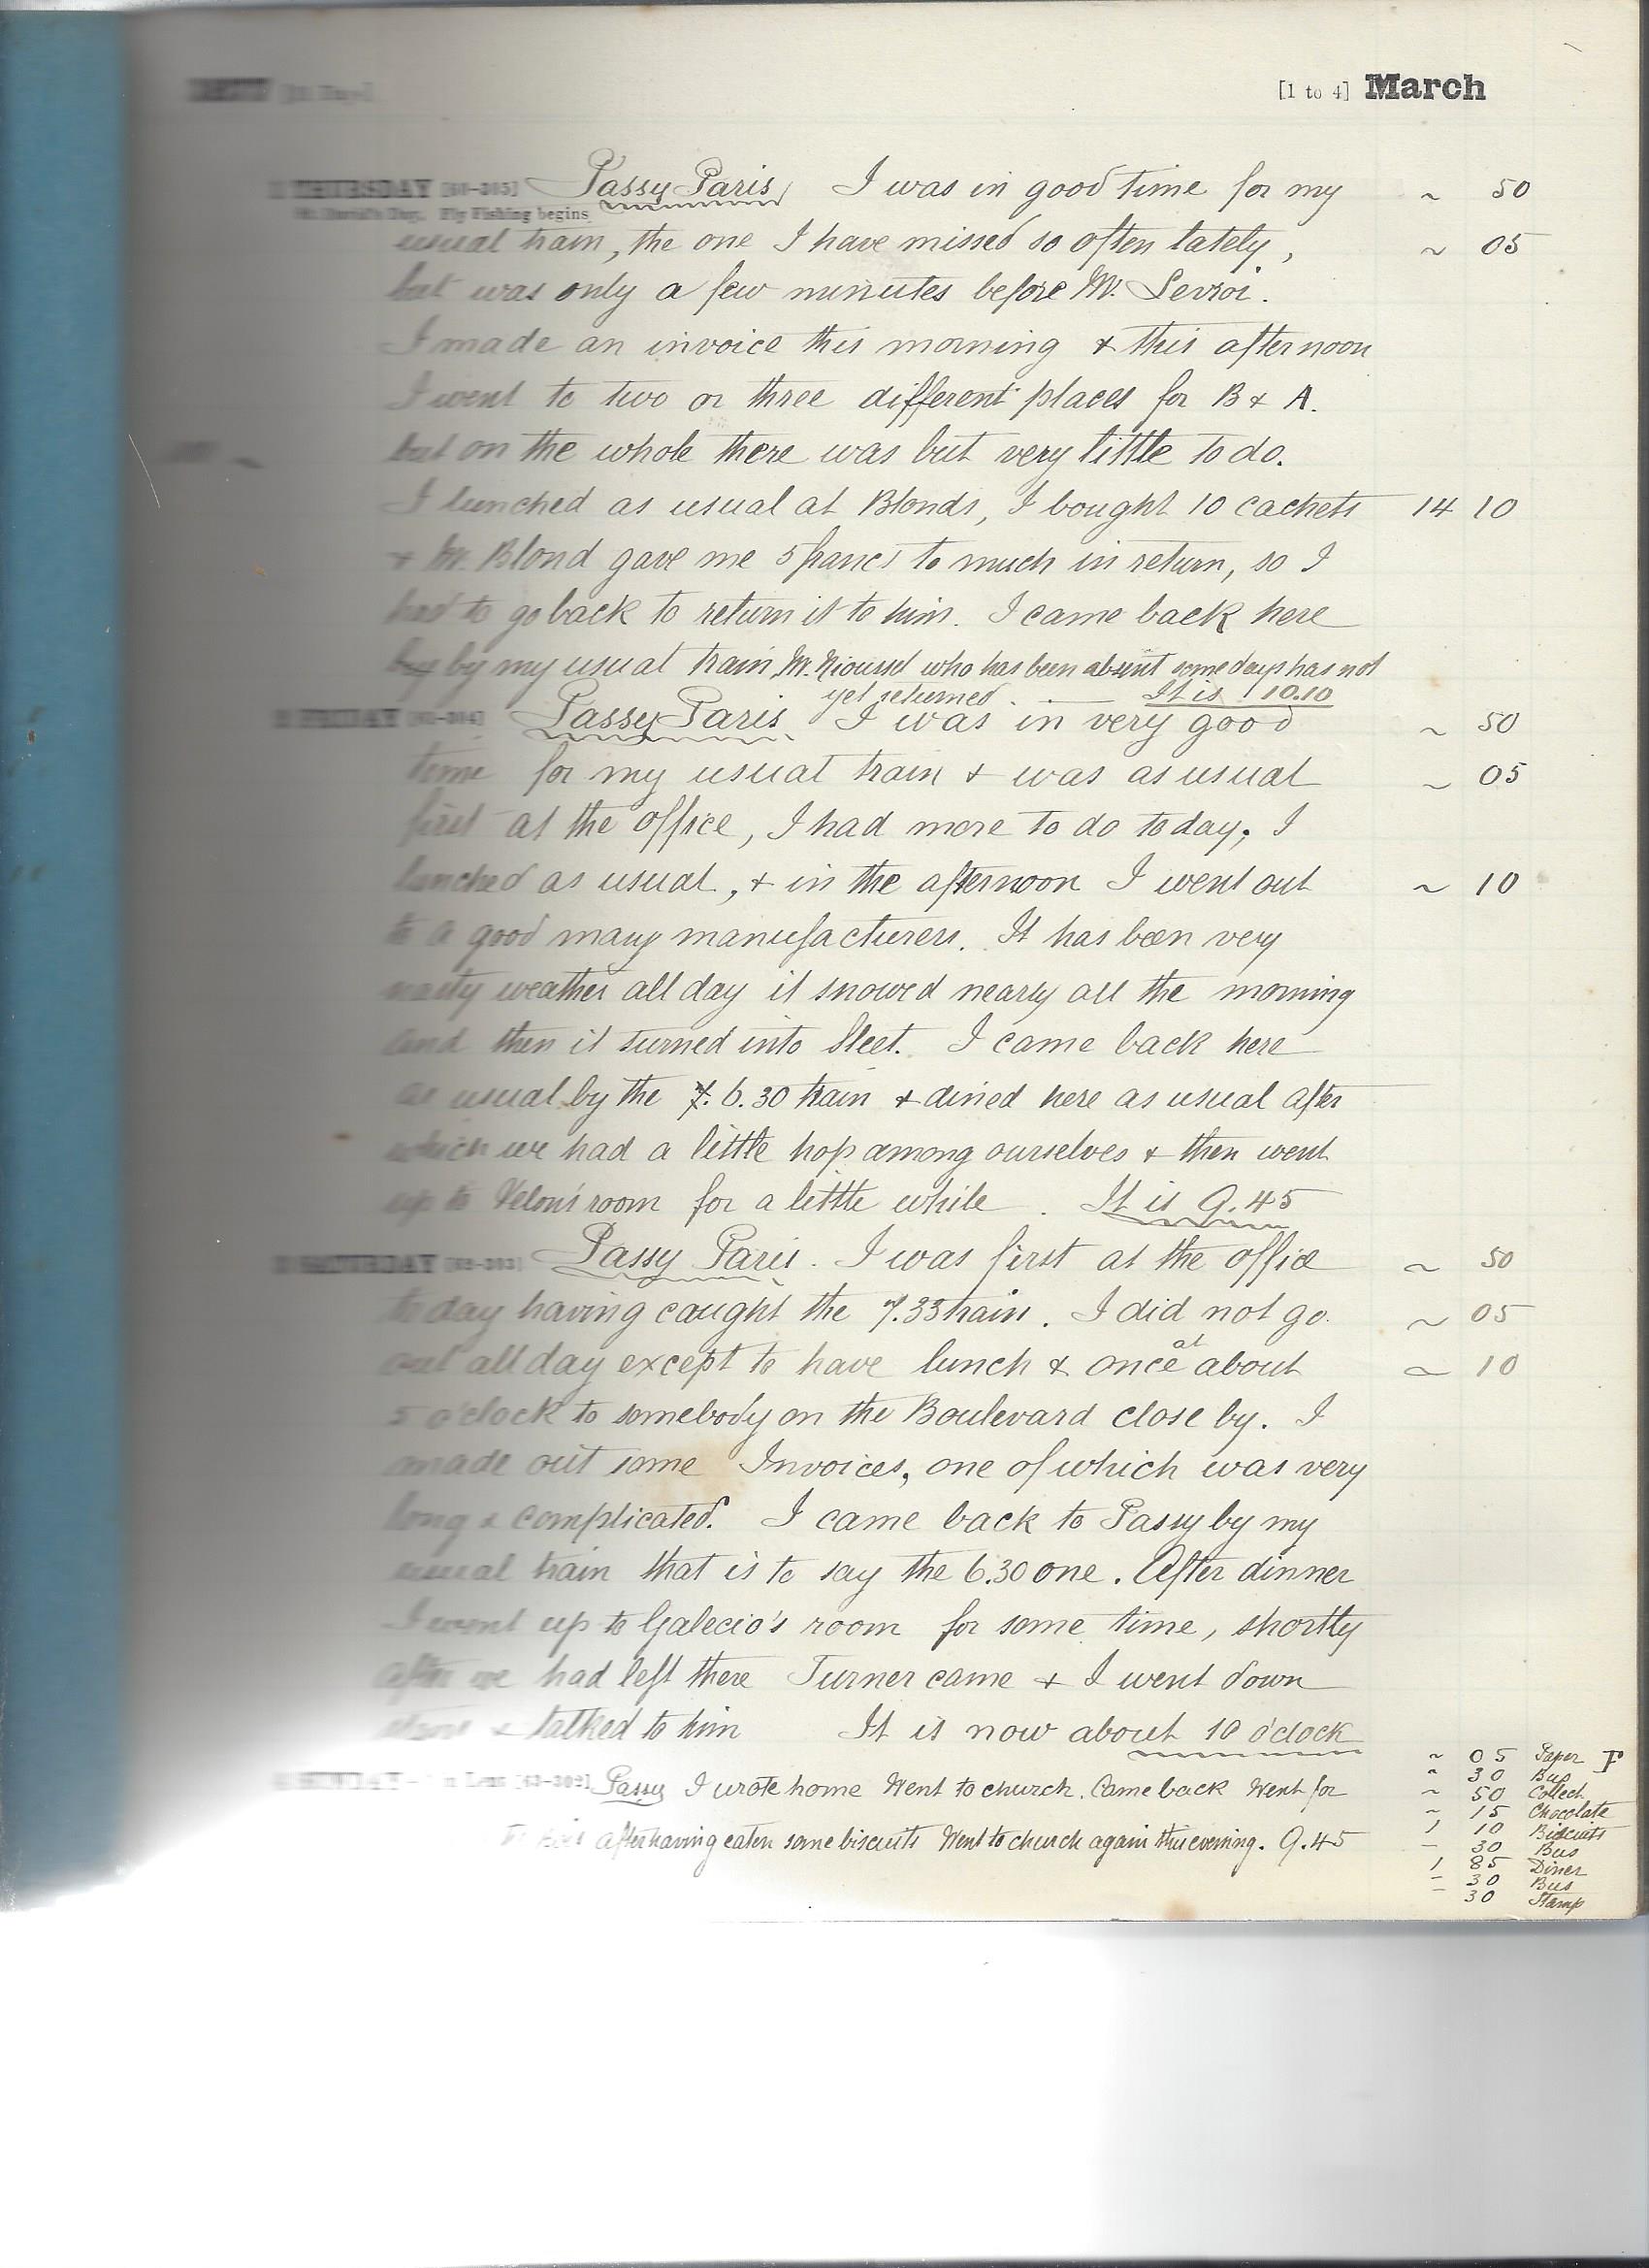 [1 to 4] March
THURSDAY [60-305] Passy Paris, I was in good time for my ~ 50
St. David's Day. Fly Fishing begins
usual train, the one I have missed so often lately, ~ 05
but was only a few minutes before M.
I made an invoice this morning & this afternoon
I went to two or three different places for B & A.
but on the whole there was but very little to do.
I lunched as usual at Blonds, I bought 10 cachets 14 10
& M. Blond gave me 5 francs to much in return, so I
had to go back to return it to him. I came back here
by my usual train, M. who has been absent some days has not
yet returned. It is 10.10
FRIDAY [61-304] Passy Paris. I was in very good ~ 50
time for my usual train & was as usual ~ 05
first at the office, I had more to do today; I
lunched as usual, & in the afternoon I went out ~ 10
to a good many manufacturers. It has been very
nasty weather all day it snowed nearly all the morning
and then it turned into sleet. I came back here
as usual by the 7. 6.30 train & dined here as usual after
which we had a little hop among ourselves & then went
up to room for a little while. It is 9.45
SATURDAY [62-303] Passy Paris. I was first at the office ~ 50
today having caught the 7.33 train. I did not go ~ 05
out all day except to have lunch & once at about ~ 10
5 o'clock to somebody on the Boulevard close by. I
made out some Invoices, one of which was very
long & complicated. I came back to Passy by my
usual train that is to say the 6.30 one. After dinner
I went up to Galecio's room for some time, shortly
after we had left there Turner came & I went down
stairs & talked to him It is now about 10 o'clock
SUNDAY in Lent [63-302] Passy I wrote home Went to church. Came back Went for
after having eaten some biscuits Went to church again this evening. 9.45
~ 05 Paper
~ 30 Bus
~ 50 Collect
~ 15 Chocolate
1 10 Biscuits
– 30 Bus
1 85 Diner
– 30 Bus
– 30 Stamp